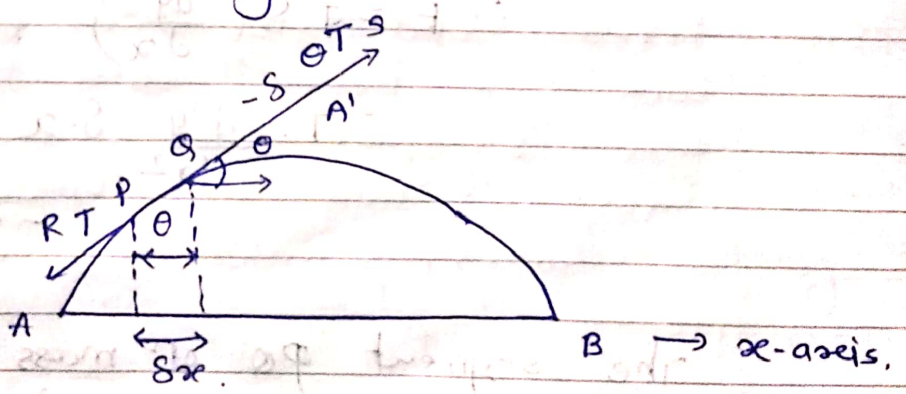 θ T S
-δ
A'
Q θ
P
R T θ
A
B → x-axis.
δx.